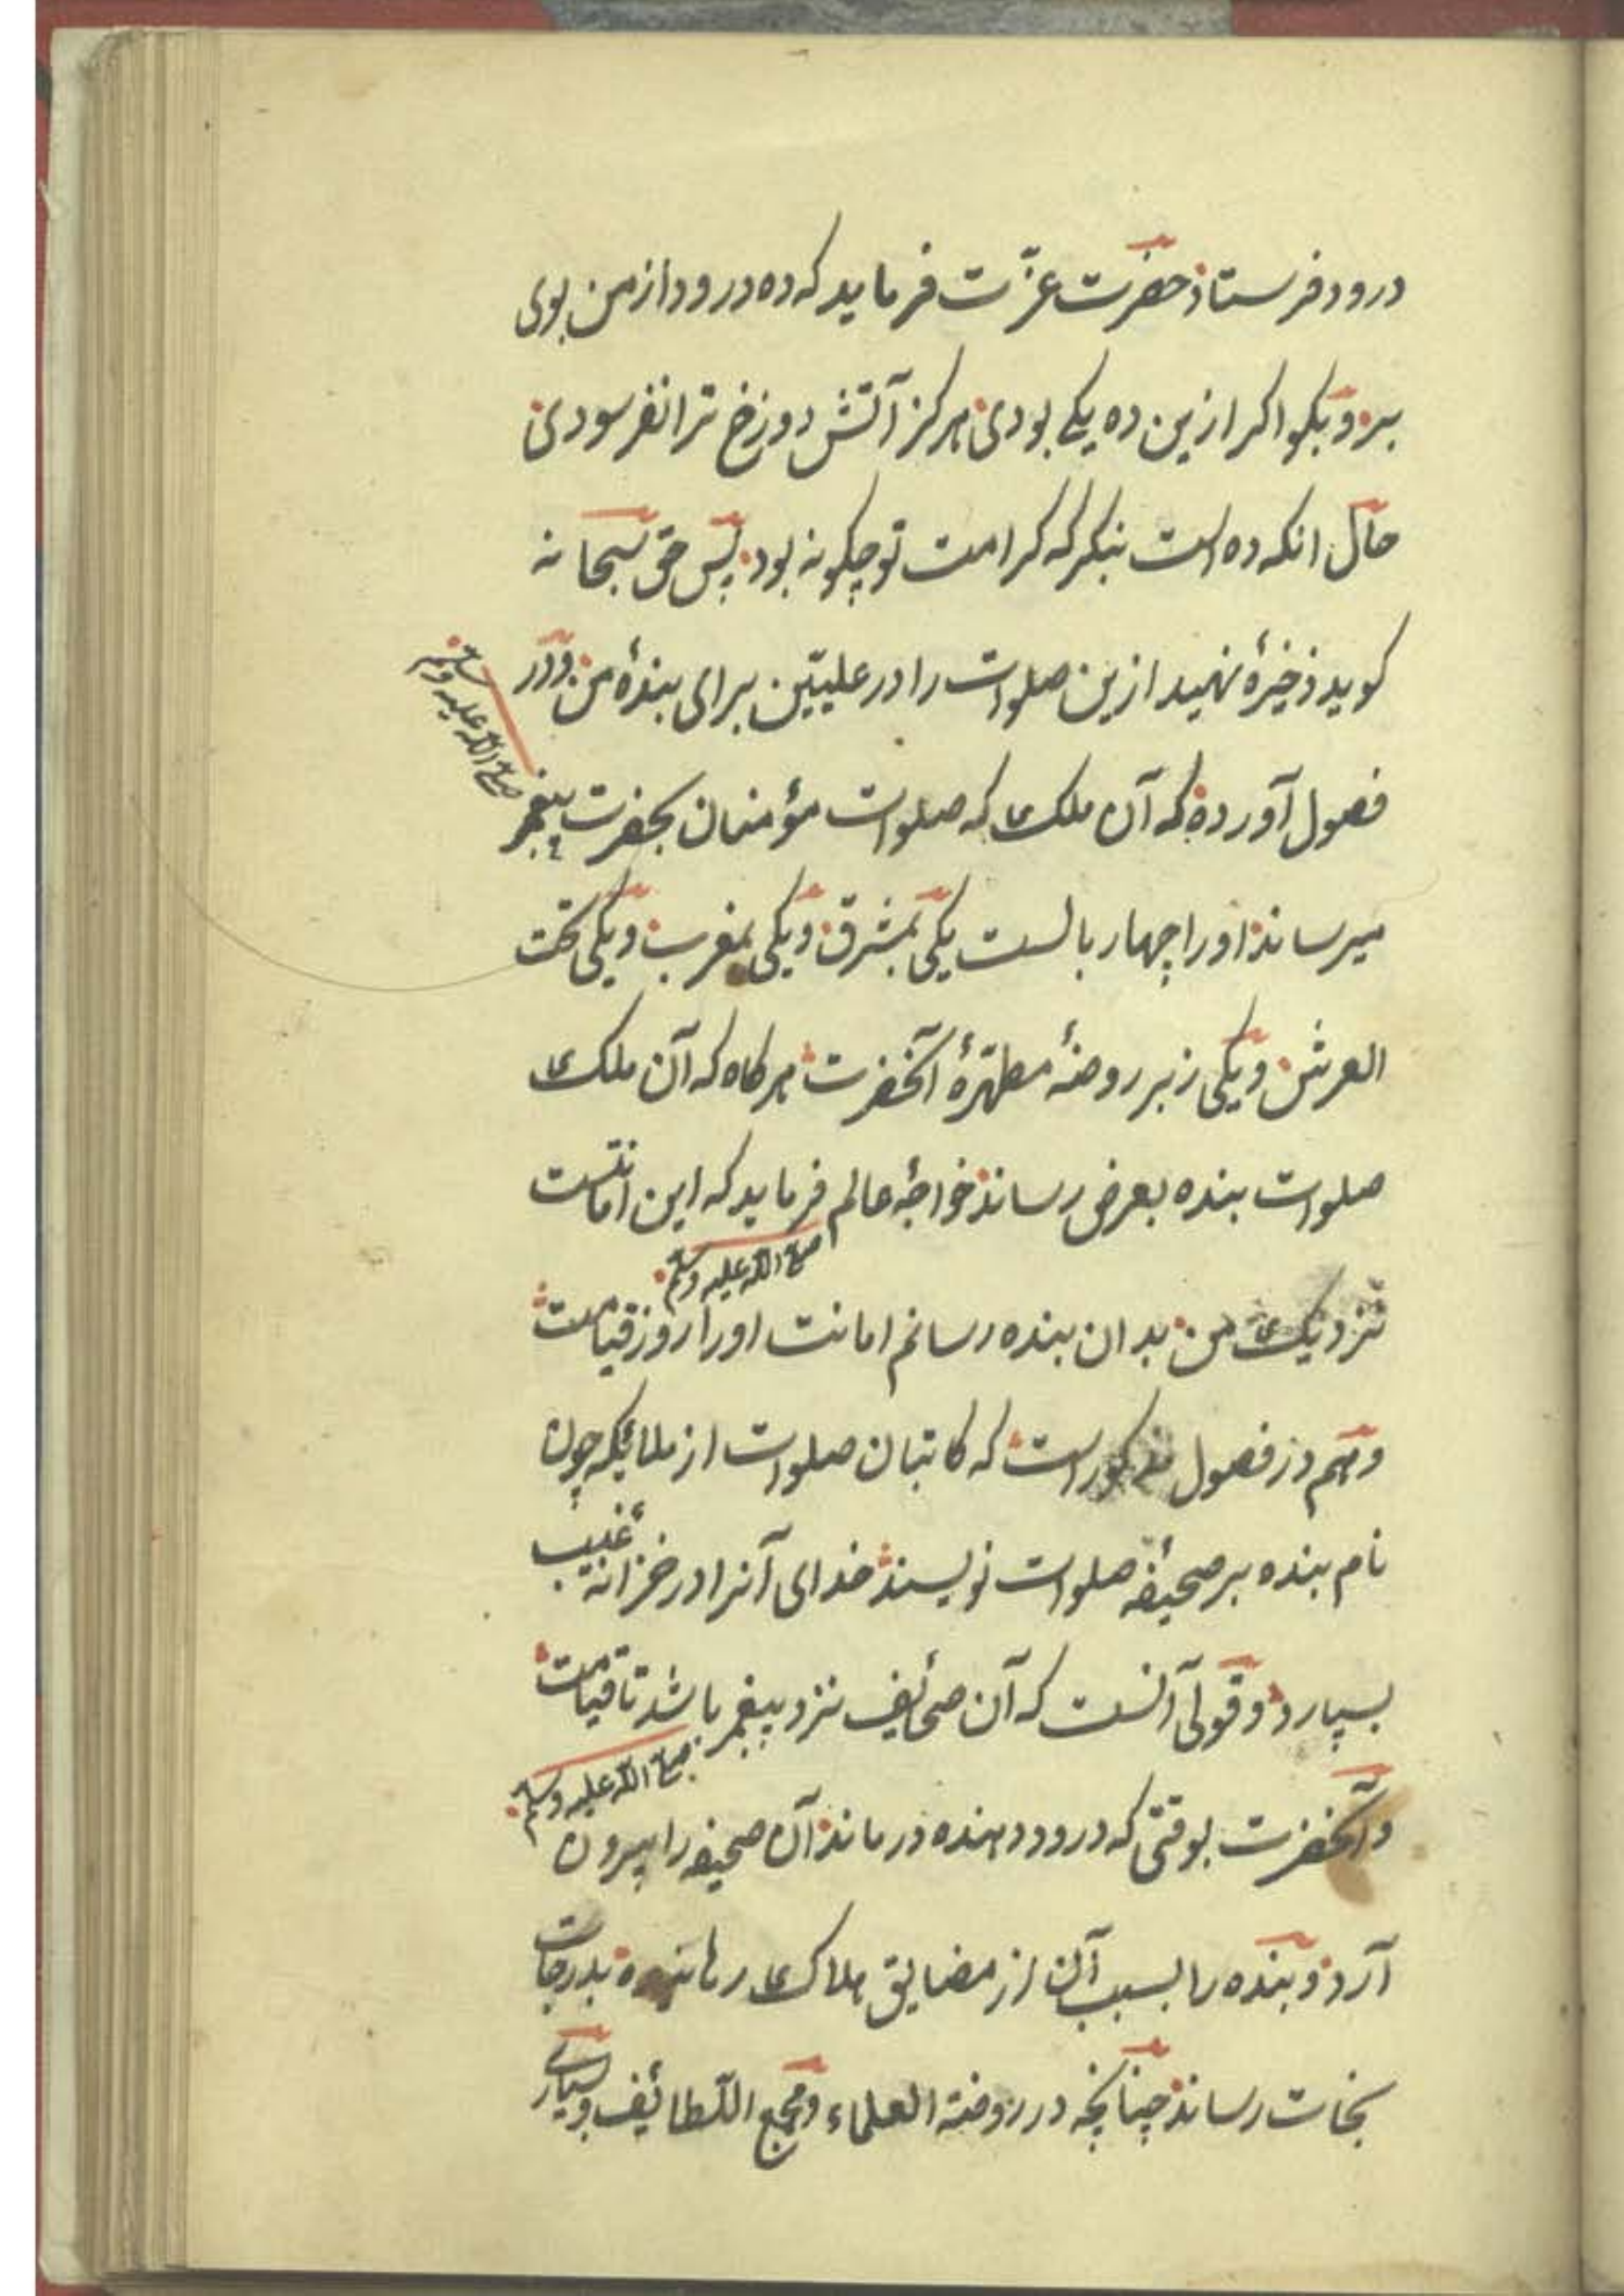 درود فرستاد حضرت عزّت فرماید که ده درود از من بوی
ببر و بکو اکر ازین ده یکی بودی هرکز آتش دوزخ ترا نفرسودی
حال انکه ده است بنکر که کرامت تو چکونه بود پس حق سبحانه
کوید ذخیرهٔ نهید ازین صلوات را در علیّین برای بندهٔ من و در
فصول آورده که آن ملک که صلوات مؤمنان بحضرت پیغمبر
صلی الله علیه وسلم
میرساند او را چهار بالست یکی بمشرق و یکی بمغرب و یکی تحت
العرش و یکی زبر روضهٔ مطهّرهٔ آنحضرت هرکاه که آن ملک
صلوات بنده بعرض رساند خواجهٔ عالم فرماید که این امانتست
صلی الله علیه وسلم
نزدیک من بدان بنده رسانم امانت او را روز قیامت
و هم در فصول مذکور است که کاتبان صلوات از ملائکه چون
نام بنده بر صحیفهٔ صلوات نویسند خدای آنرا در خزانهٔ غیب
بسپارد و قولی آنست که آن صحائف نزد پیغمبر باشد تا قیامت
صلی الله علیه وسلم
و آنحضرت بوقتی که درود دهنده درماند آن صحیفه را بیرون
آرد و بنده را بسبب آن از مضایق هلاک رهانیده بدرجات
نجات رساند چنانچه در روضة العلماء و مجمع اللّطائف و بسیاری